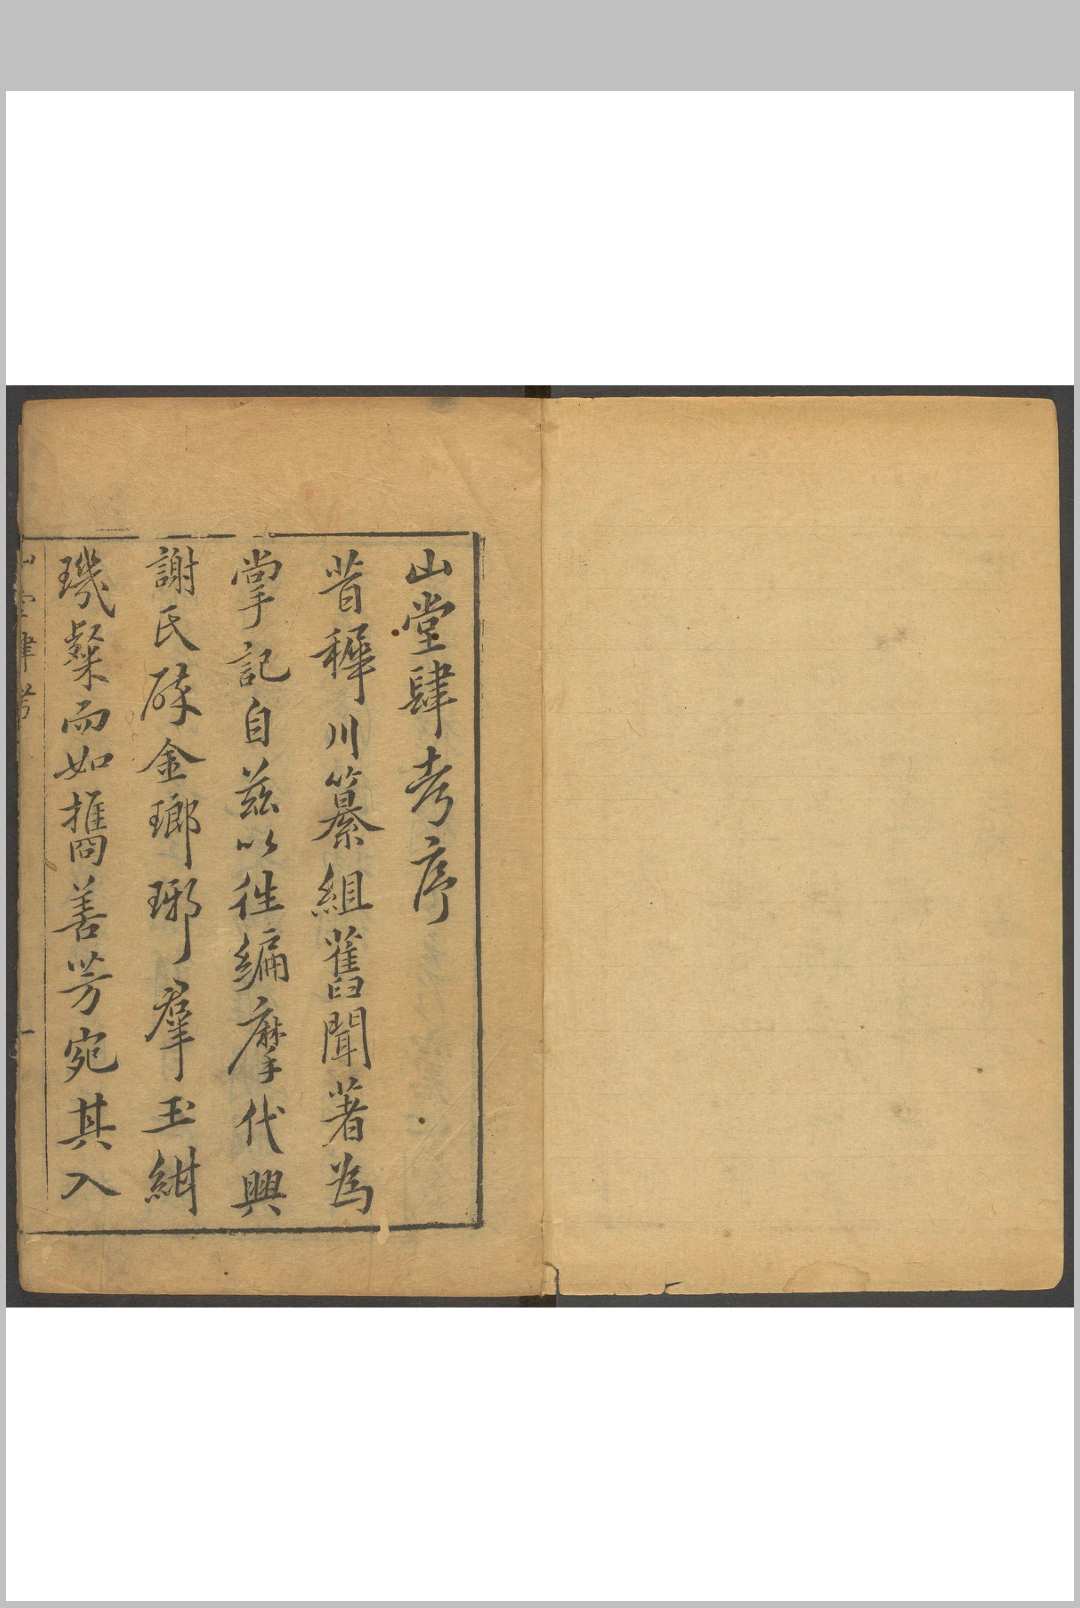 山堂肆考序
昔稺川纂組舊聞著為
掌記自茲以徃編摩代興
謝氏碎金瑯琊羣玉紺
璣粲而如㩗善芳宛其入
山堂肆考 一